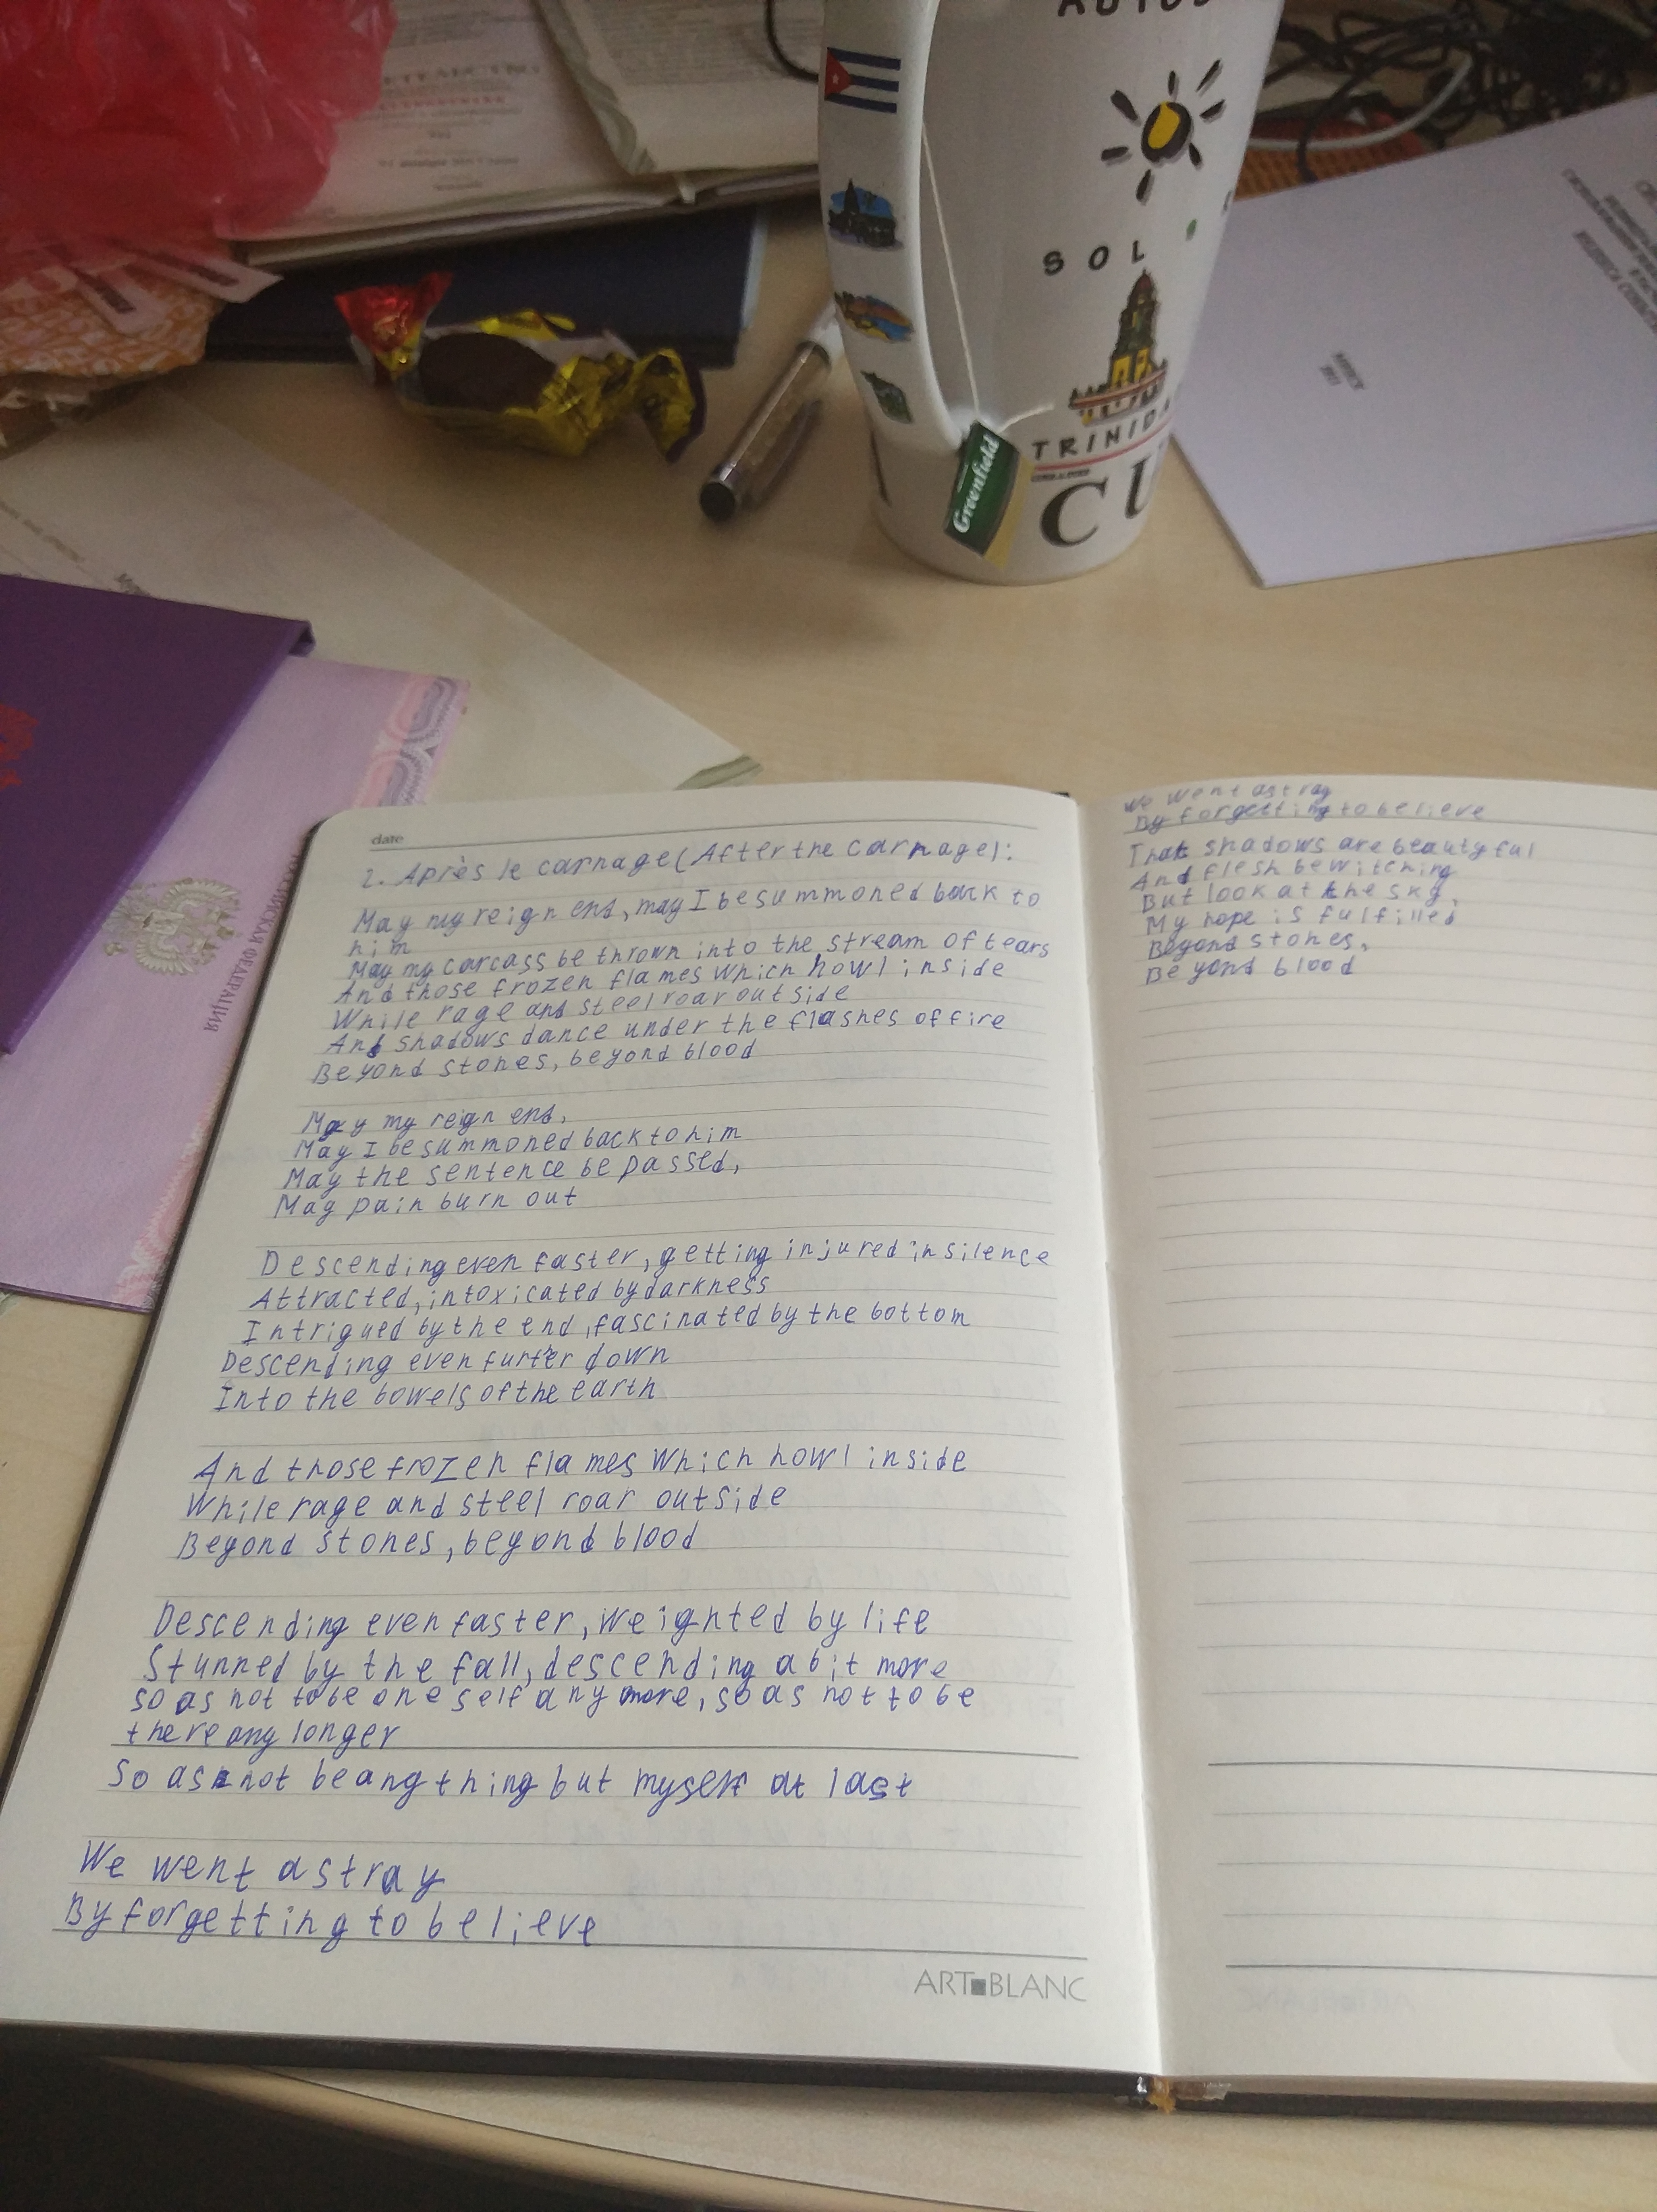 SOL
TRINID
CU
Greenfield
date
2. Après le carnage (After the carnage):
May my reign end, may I be summoned back to
him
May my carcass be thrown into the stream of tears
And those frozen flames which howl inside
While rage and steel roar outside
And shadows dance under the flashes of fire
Beyond stones, beyond blood
May my reign end,
May I be summoned back to him
May the sentence be passed,
May pain burn out
Descending even faster, getting injured in silence
Attracted, intoxicated by darkness
Intrigued by the end, fascinated by the bottom
Descending even furter down
Into the bowels of the earth
And those frozen flames which howl inside
While rage and steel roar outside
Beyond stones, beyond blood
Descending even faster, weighted by life
Stunned by the fall, descending a bit more
so as not to be oneself anymore, so as not to be
there any longer
So as not be anything but myself at last
We went astray
By forgetting to believe
ART BLANC
We went astray
By forgetting to believe
That shadows are beautyful
And flesh bewitching
But look at the sky,
My hope is fulfilled
Beyond stones,
Beyond blood
ФЕДЕРАЦИЯ